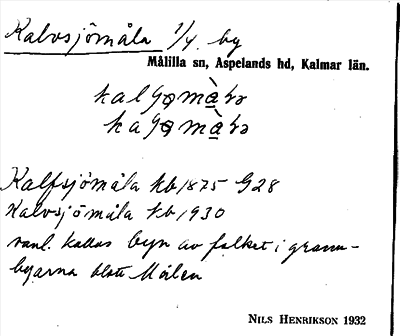 Kalvsjömåla 1/4 by
Målilla sn, Aspelands hd, Kalmar län.
Kalfsjömåla kb 1875 G28
Kalvsjömåla kb 1930
vanl. kallas byn av folket i grann-
byarna blott Målen
NILS HENRIKSON 1932